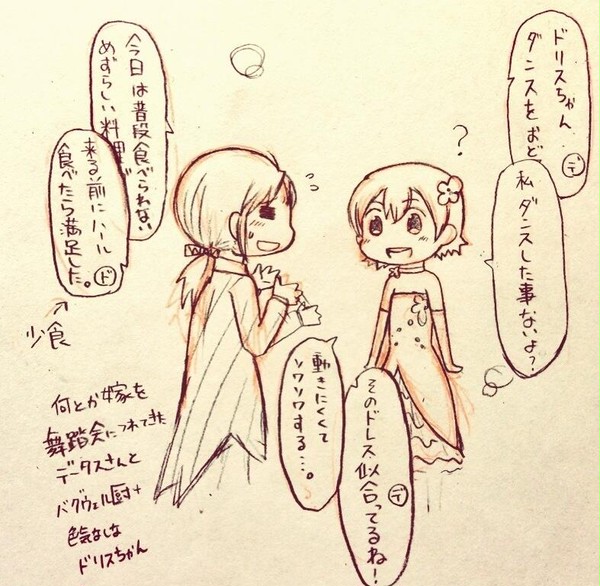 ドリスちゃん
ダンスをおど
デ
私ダンスした事ないよ?
?
今日は普段食べられない
めずらしい料理
来る前に
食べたら満足した。
ド
少食
そのドレス似合ってるね!
デ
動きにくくて
ソワソワする…。
何とか嫁を
舞踏会につれてきた
データスさんと
バグウェル厨+
色気なしな
ドリスちゃん